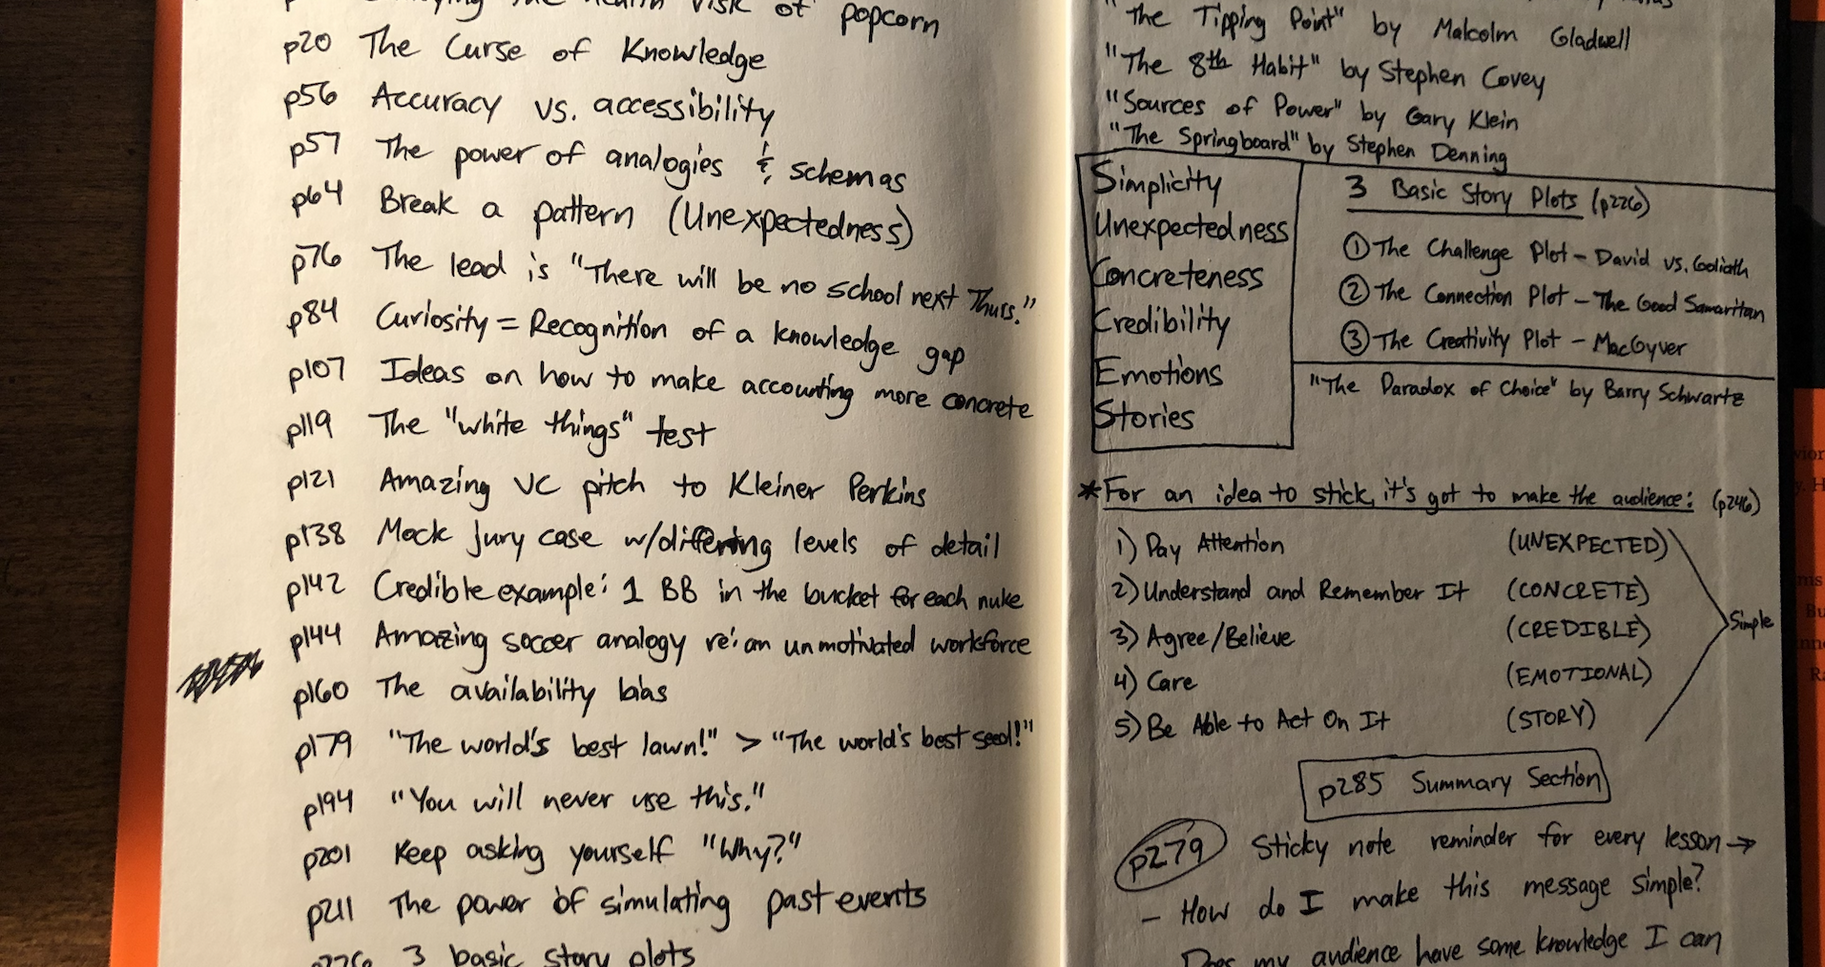 the health risk of popcorn
p20 The Curse of Knowledge
p56 Accuracy vs. accessibility
p57 The power of analogies & schemas
p64 Break a pattern (Unexpectedness)
p76 The lead is "There will be no school next Thurs."
p84 Curiosity = Recognition of a knowledge gap
p107 Ideas on how to make accounting more concrete
p119 The "white things" test
p121 Amazing VC pitch to Kleiner Perkins
p138 Mock jury case w/differing levels of detail
p142 Credible example: 1 BB in the bucket for each nuke
p144 Amazing soccer analogy re: an unmotivated workforce
p160 The availability bias
p179 "The world's best lawn!" > "The world's best seed!"
p194 "You will never use this."
p201 Keep asking yourself "Why?"
p211 The power of simulating past events
p226 3 basic story plots
"The Tipping Point" by Malcolm Gladwell
"The 8th Habit" by Stephen Covey
"Sources of Power" by Gary Klein
"The Springboard" by Stephen Denning
Simplicity
Unexpectedness
Concreteness
Credibility
Emotions
Stories
3 Basic Story Plots (p226)
① The Challenge Plot - David vs. Goliath
② The Connection Plot - The Good Samaritan
③ The Creativity Plot - MacGyver
"The Paradox of Choice" by Barry Schwartz
*For an idea to stick, it's got to make the audience: (p246)
1) Pay Attention (UNEXPECTED)
2) Understand and Remember It (CONCRETE)
3) Agree/Believe (CREDIBLE)
4) Care (EMOTIONAL)
5) Be Able to Act On It (STORY)
Simple
p285 Summary Section
p279 Sticky note reminder for every lesson →
- How do I make this message simple?
Does my audience have some knowledge I can